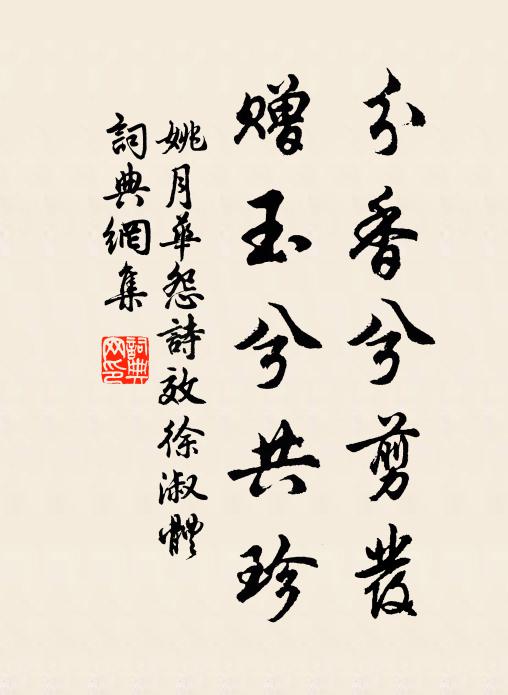 分香兮剪發
赠玉兮共珍
姚月華怨詩效徐淑體
詞典網集
詞典網印